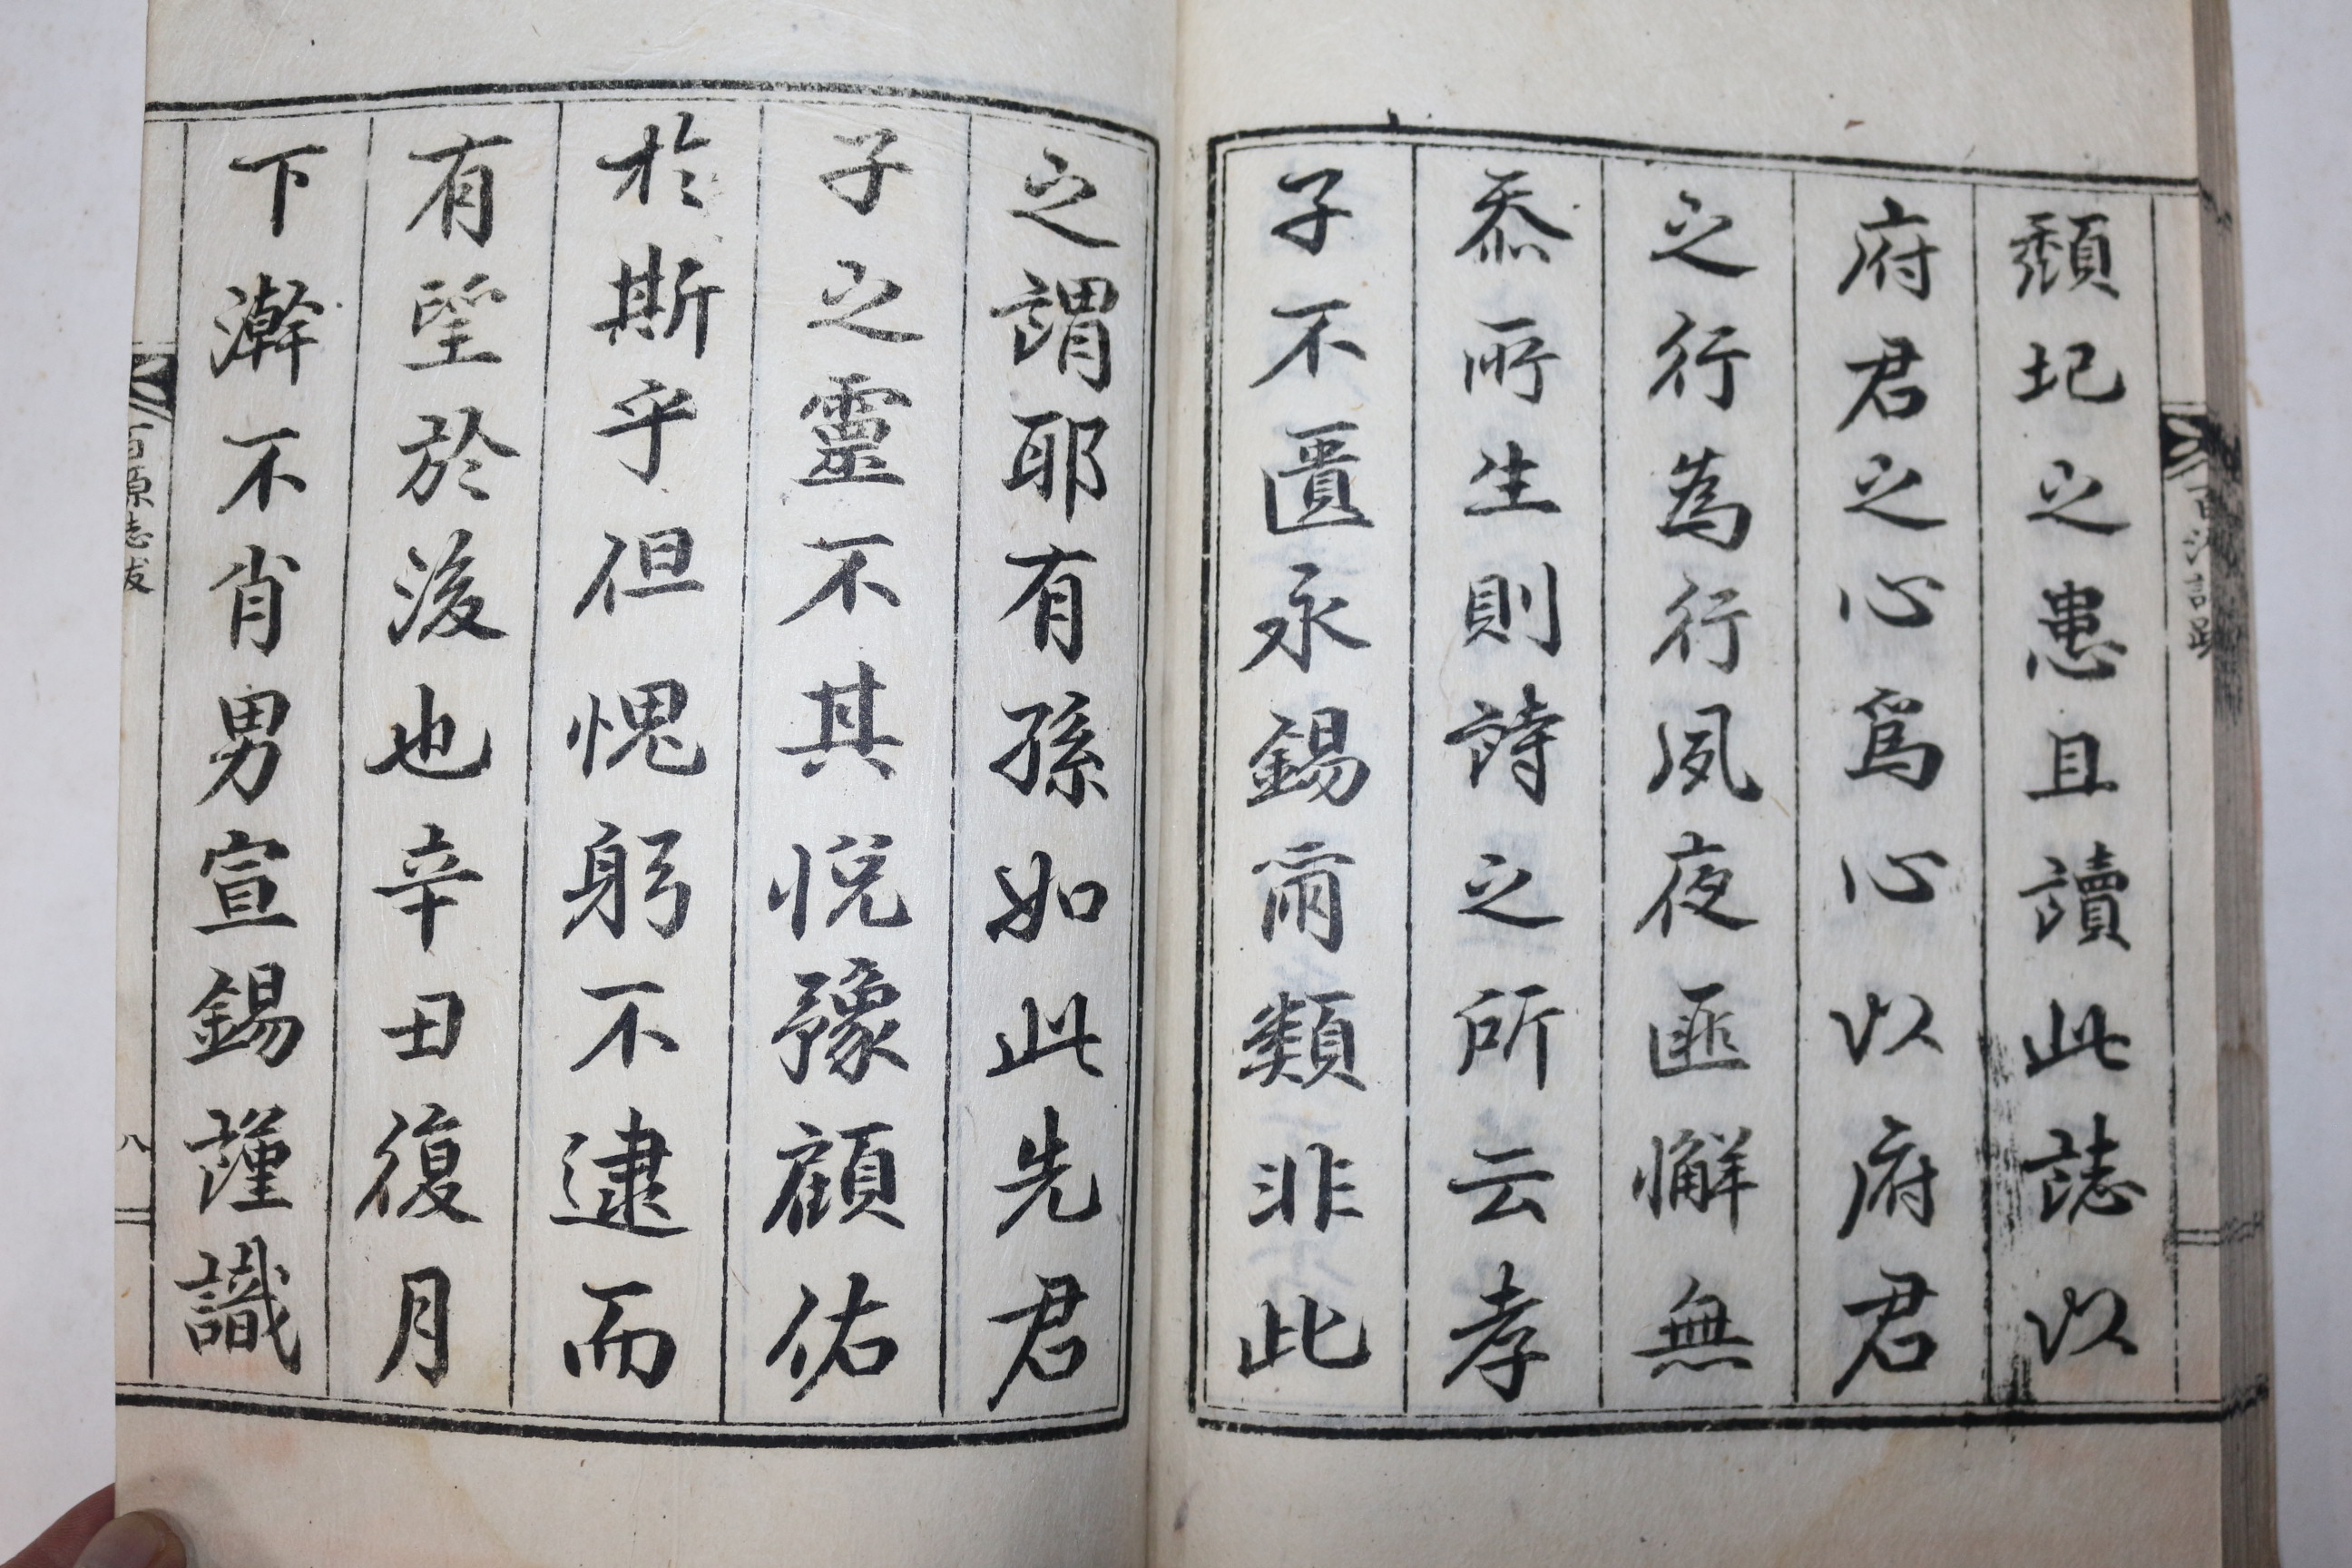 頹圮之患且讀此誌以
府君之心爲心以府君
之行為行夙夜匪懈無
忝所生則詩之所云孝
子不匱永錫爾類非此
之謂耶有孫如此先君
子之靈不其悅豫顧佑
於斯乎但愧躬不逮而
有望於後也辛丑復月
下澣不肖男宣錫謹識
百源志跋
八